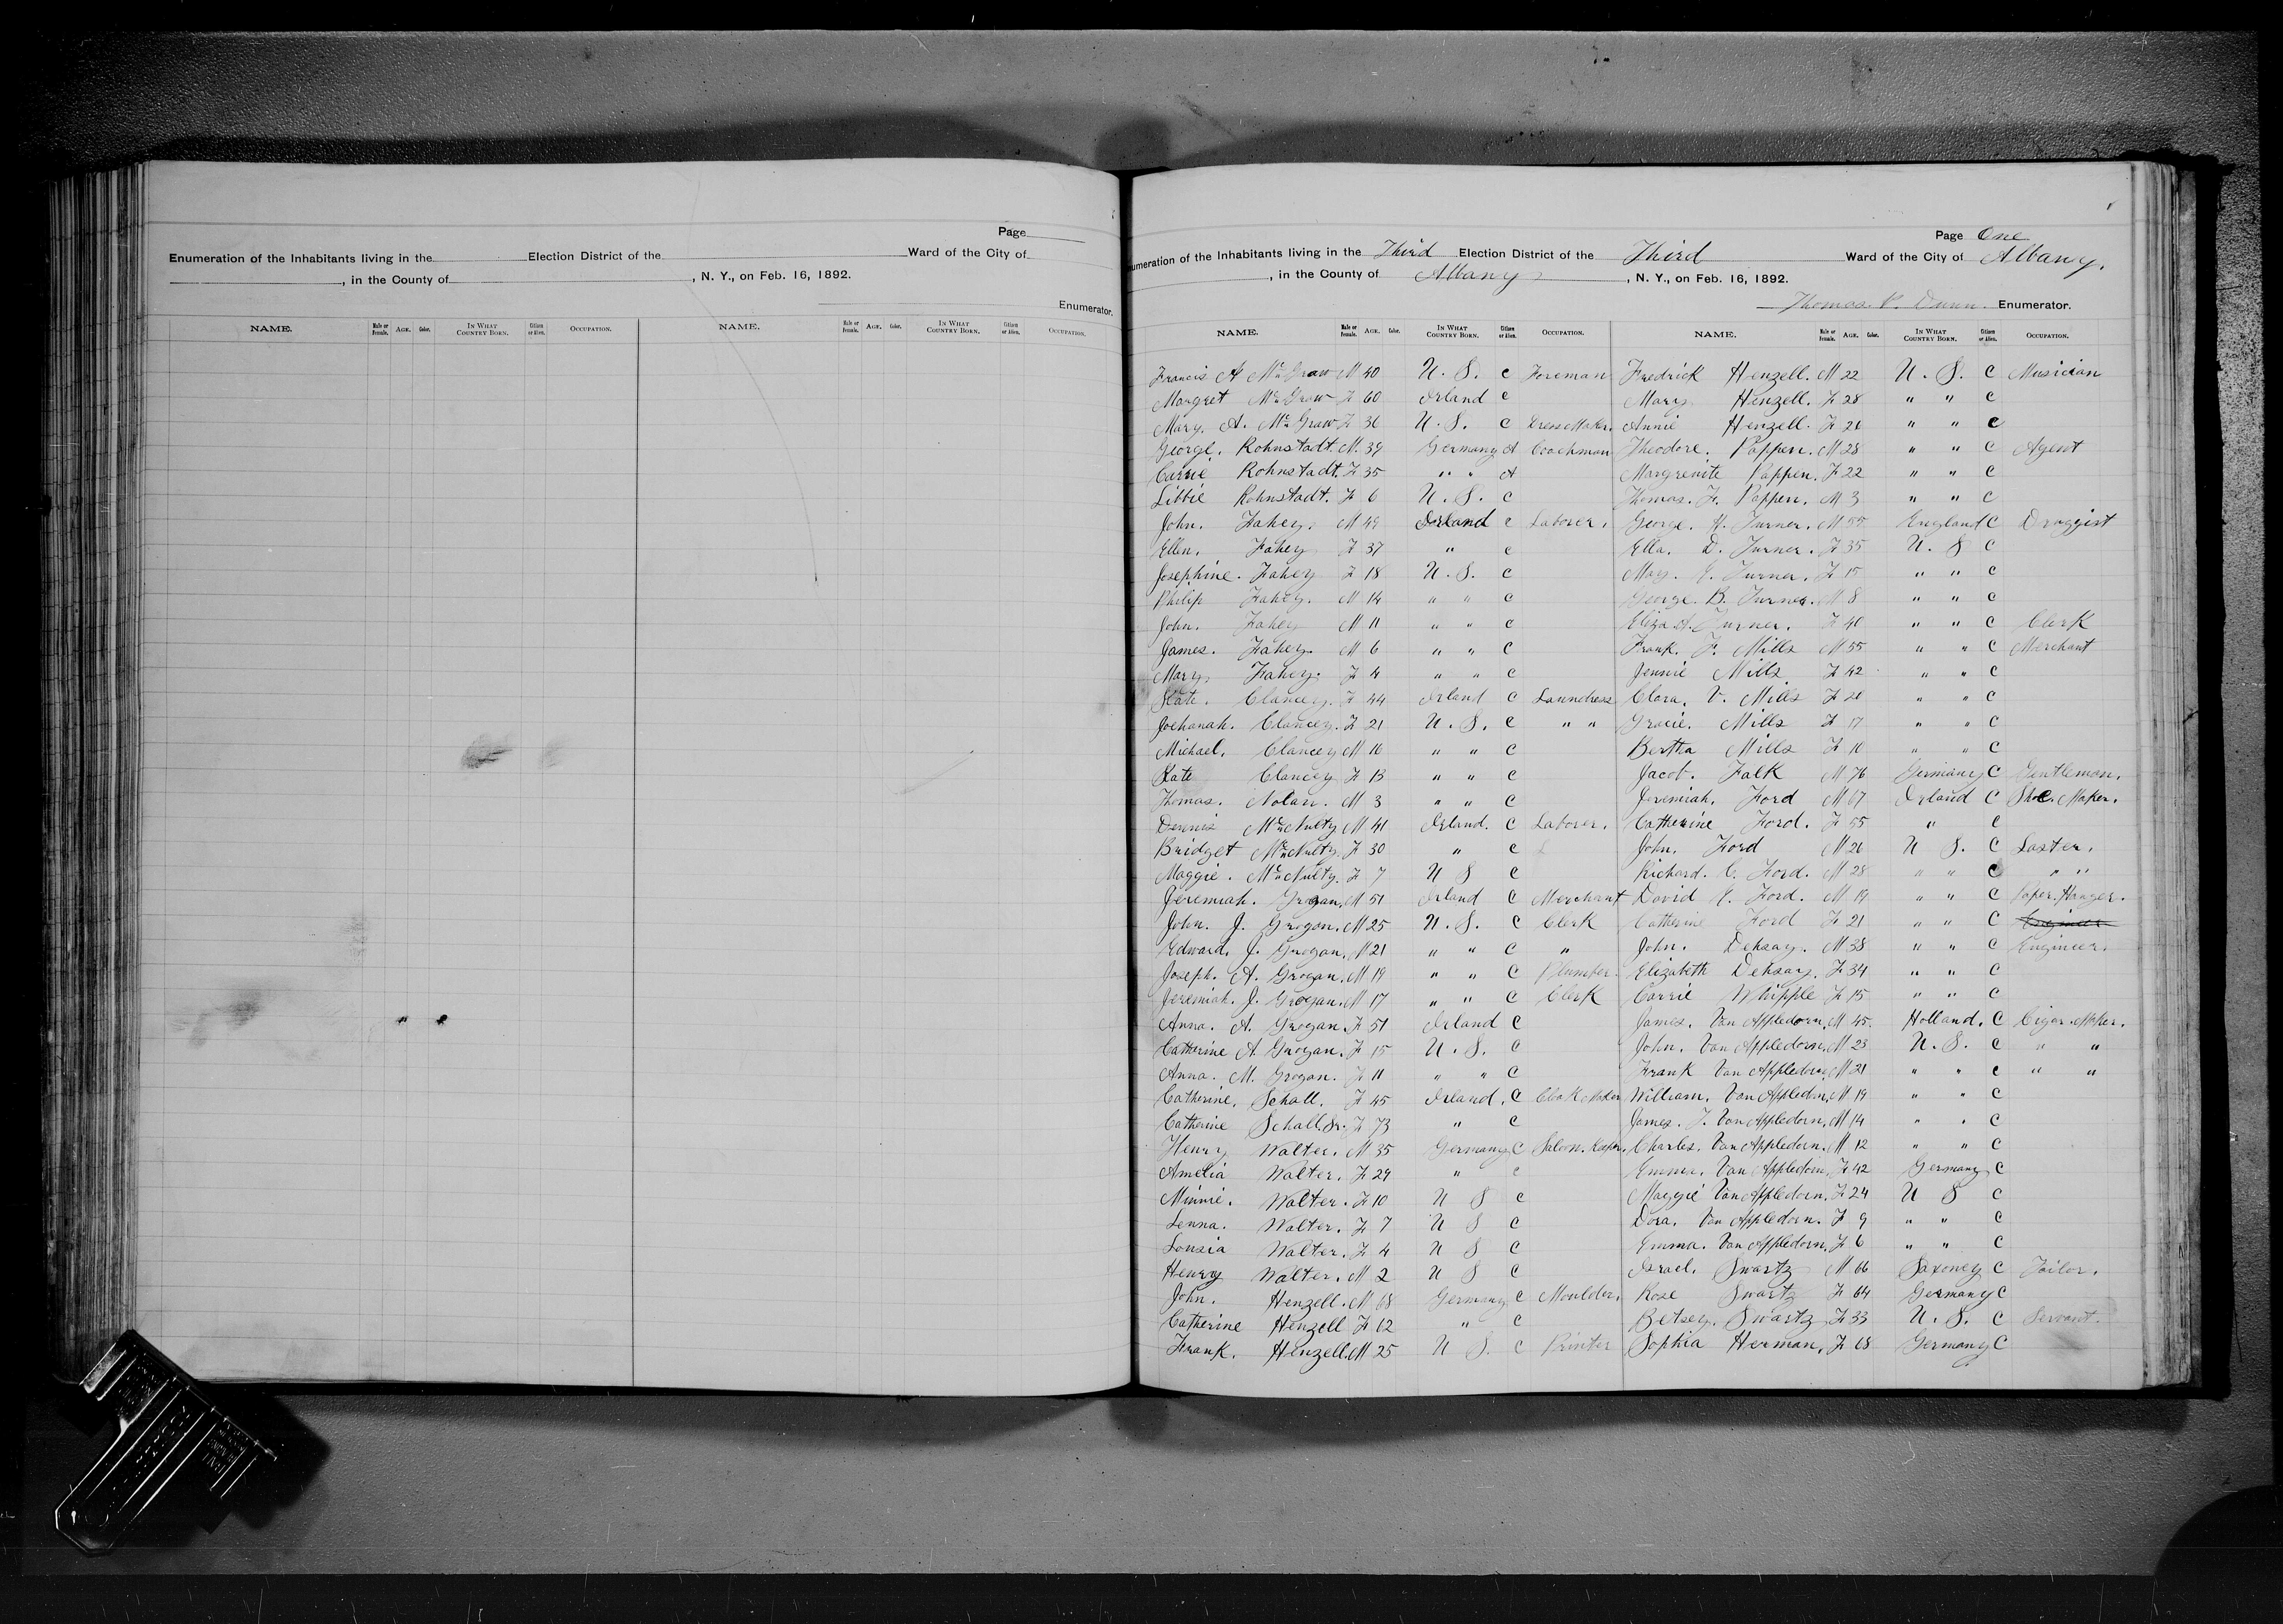 Page
Enumeration of the Inhabitants living in the Election District of the Ward of the City of
, in the County of , N. Y., on Feb. 16, 1892.
Enumerator.
NAME. Male or Female. AGE. Color. IN WHAT COUNTRY BORN. Citizen or Alien. OCCUPATION. NAME. Male or Female. AGE. Color. IN WHAT COUNTRY BORN. Citizen or Alien. OCCUPATION.
Page One
umeration of the Inhabitants living in the Third Election District of the Third Ward of the City of Albany.
, in the County of Albany , N. Y., on Feb. 16, 1892.
Thomas. P. Dunn. Enumerator.
NAME. Male or Female. AGE. Color. IN WHAT COUNTRY BORN. Citizen or Alien. OCCUPATION. NAME. Male or Female. AGE. Color. IN WHAT COUNTRY BORN. Citizen or Alien. OCCUPATION.
Francis A McGraw M 40 U. S. C Foreman
Margret McGraw F 60 Irland C
Mary. A. McGraw F 36 U. S. C Dress Maker.
George. Rohnstadt. M. 39 Germany A Coachman
Carrie Rohnstadt. F 35 " " A
Libbie Rohnstadt. F 6 U. S. C
John. Fahey. M 49 Irland C Laborer.
Ellen. Fahey F 37 " C
Josephine. Fahey F 18 U. S. C
Philip Fahey. M 14 " " C
John. Fahey M 11 " " C
James. Fahey. M 6 " " C
Mary. Fahey. F 4 " " C
Kate. Clancey. F 44 Irland C Laundress
Joehanah. Clancey. F 21 U. S. C " "
Michael. Clancey M 16 " " C
Kate Clancey F 13 " " C
Thomas. Nolan. M 3 " " C
Dennis McNulty M 41 Irland. C Laborer.
Bridget McNulty. F 30 " C
Maggie. McNulty. F 7 U S C
Jeremiah. Grogan. M 51 Irland C Merchant
John. J. Grogan. M 25 U. S. C Clerk
Edward. J. Grogan. M 21 " " C "
Joseph. A. Grogan. M 19 " " C Plumber.
Jeremiah. J. Grogan. M 17 " " C Clerk
Anna. A. Grogan. F 51 Irland C
Catherine A. Grogan. F 15 U. S. C
Anna. M. Grogan. F 11 " " C
Catherine. Schall. F 45 Irland. C Cloak Maker
Catherine Schall. Sr. F 73 " C
Henry Walter. M 35 Germany C Saloon. Keeper.
Amelia Walter. F 29 " C
Minnie. Walter. F 10 U S C
Lenna. Walter. F 7 U S C
Lousia Walter. F 4 U S C
Henry Walter. M 2 U S C
John. Henzell. M 68 Germany. C Moulder.
Catherine Henzell F 62 " C
Frank. Henzell. M 25 U S. C Printer
Fredrick Henzell. M 22 U. S. C Musician
Mary Henzell. F 28 " " C
Annie Henzell. F 26 " " C
Theodore. Pappen. M 28 " " C Agent
Margrenite Pappen. F 22 " " C
Thomas. F. Pappen. M 3 " " C
George. H. Turner. M 55 England C Druggist
Ella. D. Turner. F 35 U. S C
May. E. Turner. F 15 " " C
George. B. Turner. M 8 " " C
Eliza A. Turner. F 40 " " C Clerk
Frank. F. Mills M 55 " " C Merchant
Jennie Mills F 42 " " C
Clara. V. Mills F 20 " " C
Gracie. Mills F 17 " " C
Bertha Mills F 10 " " C
Jacob. Falk M 76 Germany C Gentleman.
Jeremiah. Ford M 67 Irland C Shoe. Maker.
Catherine Ford. F 55 " C
John. Ford M 26 U S. C Laster.
Richard. C. Ford. M 28 " " C " "
David J. Ford. M 19 " " C Paper. Hanger.
Catherine Ford F 21 " " C Engineer
John. Dehsay. M 38 " " C Engineer.
Elizabeth Dehsay. F 34 " " C
Carrie Whipple F 15 " " C
James. Van Appledorn. M 45. Holland. C Cigar. Maker.
John. Van Appledorn. M 23 U. S. C " "
Frank Van Appledorn. M 21 " " C " "
William. Van Appledorn. M 19 " " C
James. J. Van Appledorn. M 14 " " C
Charles. Van Appledorn. M 12 " " C
Emma. Van Appledorn. F 42 Germany C
Maggie Van Appledorn. F 24 U S C
Dora. Van Appledorn. F 9 " " C
Emma. Van Appledorn. F 6 " " C
Israel. Swartz M 66 Saxoney C Tailor.
Rose Swartz F 64 Germany C
Betsey. Swartz F 33 U. S. C Servant.
Sophia Herman. F 68 Germany C